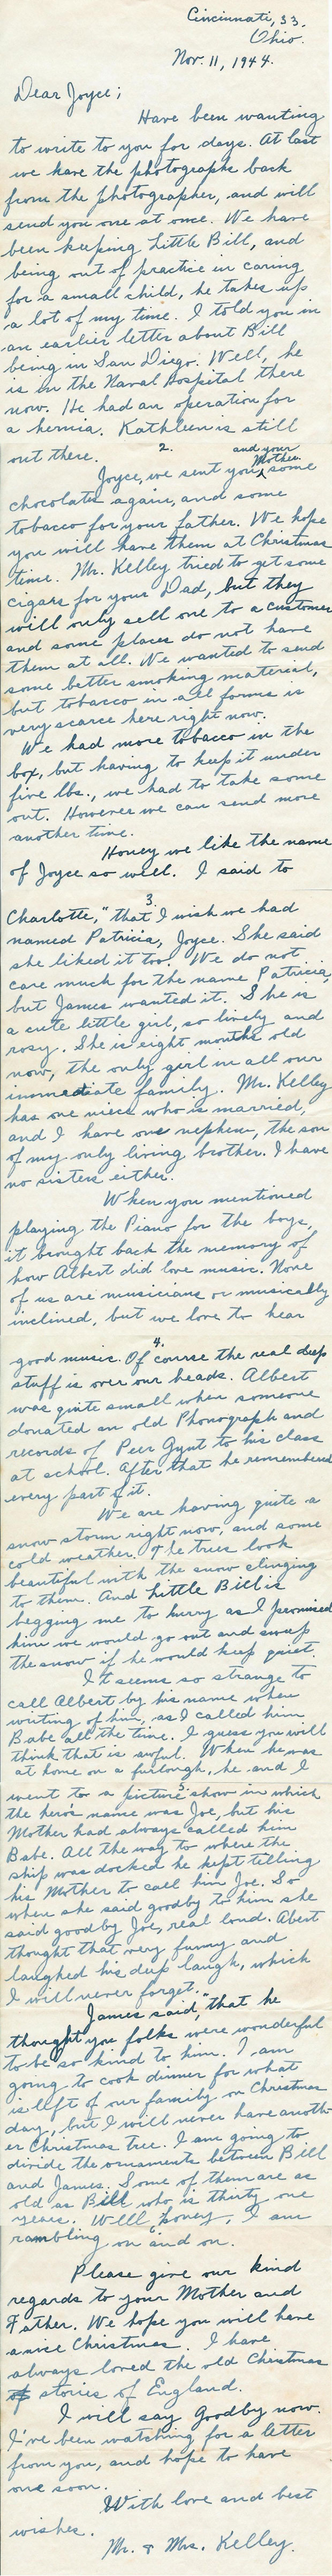 Cincinnati, 33,
Ohio.
Nov. 11, 1944.
Dear Joyce;
Have been wanting
to write to you for days. At last
we have the photographs back
from the photographer, and will
send you one at once. We have
been keeping Little Bill, and
being out of practice in caring
for a small child, he takes up
a lot of my time. I told you in
an earlier letter about Bill
being in San Diego. Well, he
is in the Naval Hospital there
now. He had an operation for
a hernia. Kathleen is still
out there.
2.
and your
Mother
Joyce, we sent you some
chocolates again, and some
tobacco for your father. We hope
you will have them at Christmas
time. Mr. Kelley tried to get some
cigars for your Dad, but they
will only sell one to a customer
and some places do not have
them at all. We wanted to send
some better smoking material,
but tobacco in all forms is
very scarce here right now.
We had more tobacco in the
box, but having to keep it under
five lbs., we had to take some
out. However we can send more
another time.
Honey we like the name
of Joyce so well. I said to
3.
Charlotte, "that I wish we had
named Patricia, Joyce. She said
she liked it too. We do not
care much for the name Patricia,
but James wanted it. She is
a cute little girl, so lively and
rosy. She is eight months old
now, the only girl in all our
immediate family. Mr. Kelley
has one niece who is married,
and I have one nephew, the son
of my only living brother. I have
no sisters either.
When you mentioned
playing the Piano for the boys,
it brought back the memory of
how Albert did love music. None
of us are musicians or musically
inclined, but we love to hear
4.
good music. Of course the real deep
stuff is over our heads. Albert
was quite small when someone
donated an old Phonograph and
records of Peer Gynt to his class
at school. After that he remembered
every part of it.
We are having quite a
snow storm right now, and some
cold weather. The trees look
beautiful with the snow clinging
to them. And Little Bill is
begging me to hurry as I promised
him we would go out and sweep
the snow if he would keep quiet.
It seems so strange to
call Albert by his name when
writing of him, as I called him
Babe all the time. I guess you will
think that is awful. When he was
at home on a furlough, he and I
5.
went to a picture show in which
the heros name was Joe, but his
Mother had always called him
Babe. All the way to where the
ship was docked he kept telling
his Mother to call him Joe. So
when she said goodby to him she
said goodby Joe, real loud. Abert
thought that very funny and
laughed his deep laugh, which
I will never forget.
James said, "that he
thought you folks were wonderful
to be so kind to him. I am
going to cook dinner for what
is left of our family on Christmas
day, but I will never have anoth-
er Christmas tree. I am going to
divide the ornaments between Bill
and James. Some of them are as
old as Bill who is thirty one
years. Well honey, I am
rambling on and on.
Please give our kind
regards to your Mother and
Father. We hope you will have
a nice Christmas. I have
always loved the old Christmas
stories of England.
I will say Goodby now.
I've been watching for a letter
from you, and hope to have
one soon.
With love and best
wishes.
Mr. & Mrs. Kelley.